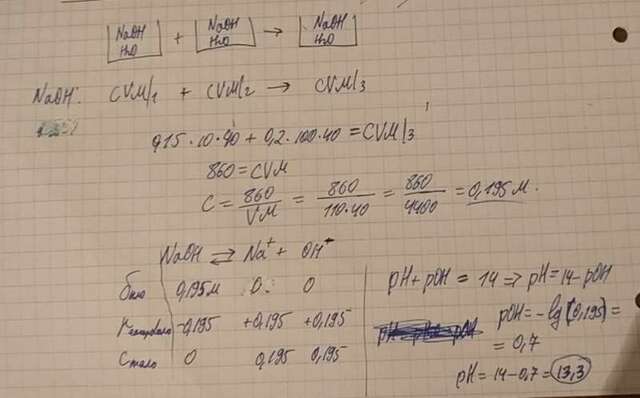 NaOH + NaOH → NaOH
H₂O H₂O H₂O
NaOH: CVM|₁ + CVM|₂ → CVM|₃
0,15·10·40 + 0,2·100·40 = CVM|₃
860 = CVM
C = 860/VM = 860/110·40 = 860/4400 = 0,195 M.
NaOH ⇄ Na⁺ + OH⁺
было 0,195м 0 0
-0,195 +0,195 +0,195
стало 0 0,195 0,195
pH + pOH = 14 ⇒ pH = 14 - pOH
pOH = -lg(0,195) =
= 0,7
pH = 14 - 0,7 = 13,3